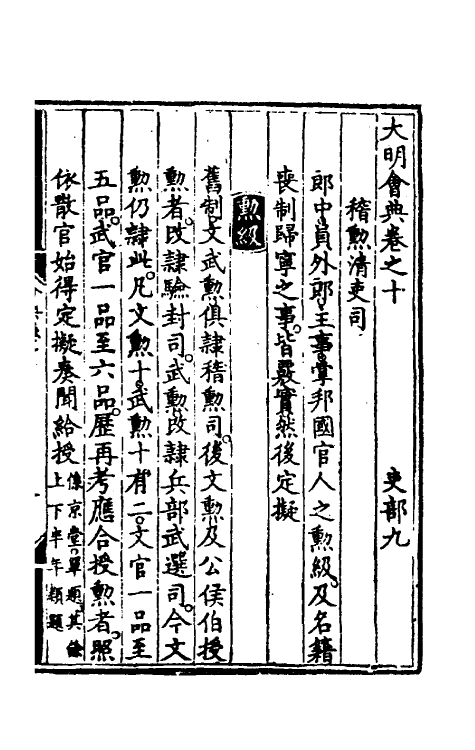 大明會典卷之十 吏部九
稽勲清吏司
郎中員外郎主事。掌邦國官人之勲級。及名籍
喪制歸寧之事。皆覈實然後定擬
勲級
舊制。文武勲俱隸稽勲司。後文勲及公侯伯授
勲者。改隸驗封司。武勲改隸兵部武選司。今文
勲仍隸此。凡文勲十。武勲十有二。文官一品至
五品。武官一品至六品。歷再考應合授勲者。照
依散官始得定擬奏聞給授 係京堂。單題。其餘上下半年類題